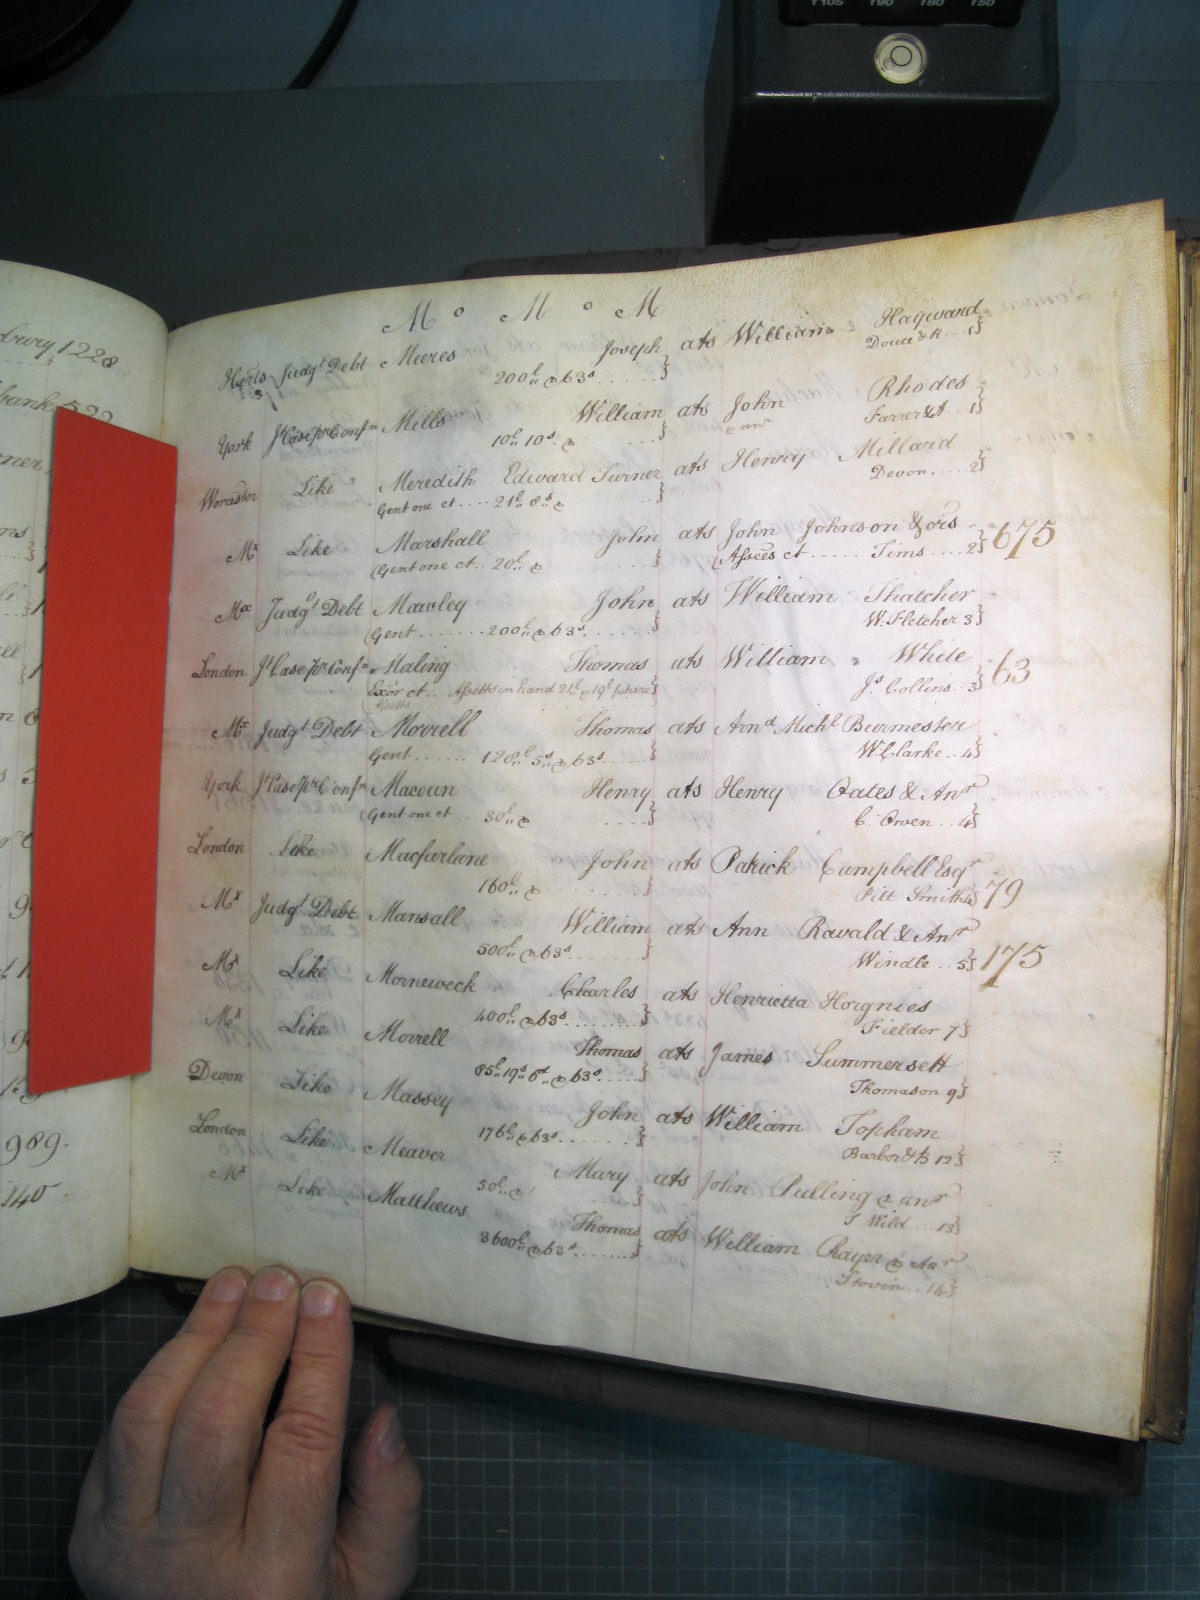 PHILIPS
T105 T90 T80 T50
drury 1228
bank 522
989.
140.
M o M o M
Herts Judgt Debt Meeres Joseph ats William Hayward
200l.. & 63s ...... Douce & R ... 1
York Jt Case pr Confn Mills William ats John Rhodes
10l 10s. & .... & anr Farrer & A .. 1
Worcester Like Meredith Edward Turner ats Henry Millard
Gent one ct .... 21l 8s & .... Devon ..... 2
Mx Like Marshall John ats John Johnson & ors 675
(Gent one ct .. 20l.. & ..... (Assees ct ..... Tims .... 2
Mx Judgt Debt Mawley John ats William Thatcher
(Gent ....... 200l.. & 63s ...... W. Fletcher 3
London Jt Case pr Confn Maling Thomas ats William White 63
Exor ct ... Assetts in hand 21l & 19l future Js. Collins .. 3
assetts
Mx Judgt Debt Morrell Thomas ats Arnd Michl Burmester
Gent ...... 120l.. 5s.. & 63s ..... W Clarke .. 4
York Jt Case pr Confn Macoun Henry ats Henry Oates & Anr
(Gent one ct ... 30l.. & ..... C. Owen .. 4
London Like Macfarlane John ats Patrick Campbell Esqr
160l. & ....... Pitt Smith 4 79
Mx Judgt Debt Mansall William ats Ann Ravald & Anr
500l.. & 63s ........ Windle .. 5 175
Mx Like Morneweck Charles ats Henrietta Horgnies
400l.. & 63s ......... Fielder 7
Mx Like Morrell Thomas ats James Summersett
85l.. 19s.. 6d.. & 63s ...... Thomason 9
Devon Like Massey John ats William Topham
176l.. & 63s ......... Barbor & B 12
London Like Meaver Mary ats John Pulling & anr
50l.. & ..... J Wild ... 13
Mx Like Matthews Thomas ats William Rayer & Anr
3600l.. & 63s ........ Stovin .. 14